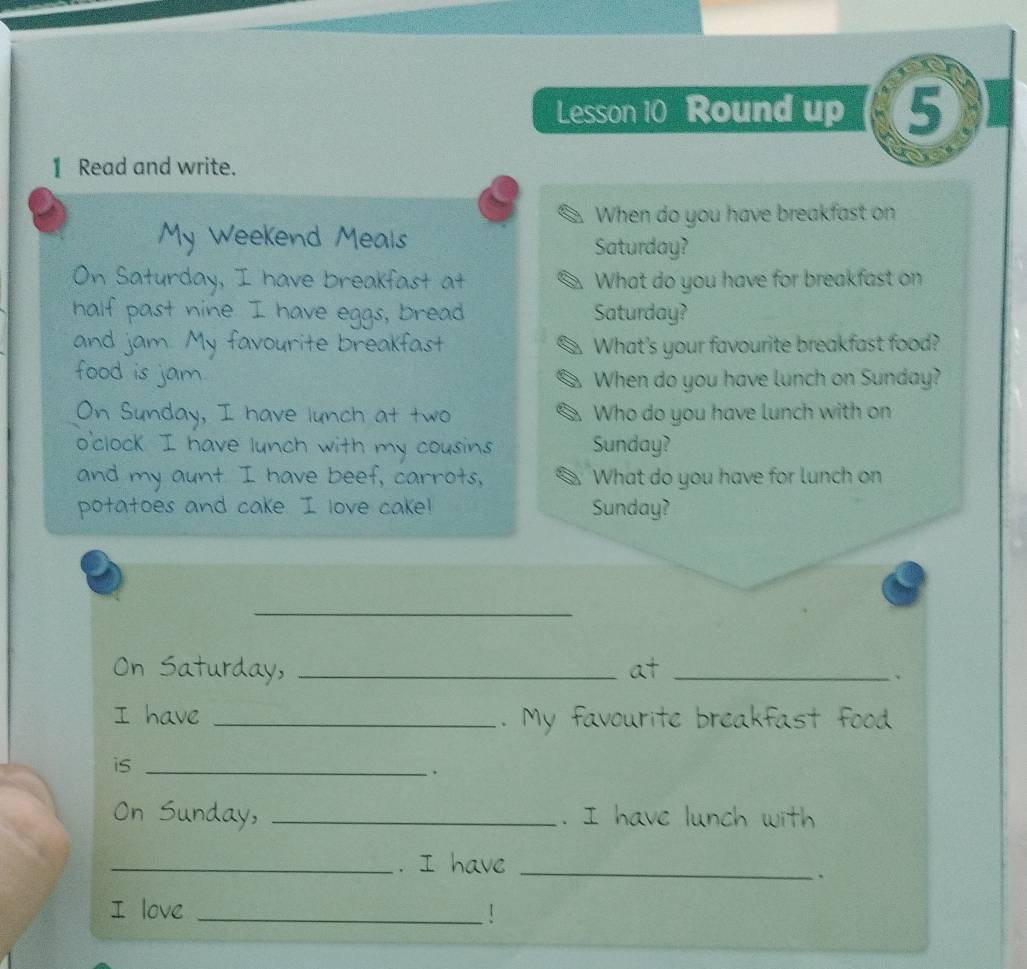 Lesson 10 Round up 5
1 Read and write.
My Weekend Meals
On Saturday, I have breakfast at
half past nine. I have eggs, bread
and jam. My favourite breakfast
food is jam.
On Sunday, I have lunch at two
o'clock. I have lunch with my cousins
and my aunt. I have beef, carrots,
potatoes and cake. I love cake!
When do you have breakfast on
Saturday?
What do you have for breakfast on
Saturday?
What's your favourite breakfast food?
When do you have lunch on Sunday?
Who do you have lunch with on
Sunday?
What do you have for lunch on
Sunday?
On Saturday, ____ at ____.
I have ____. My favourite breakfast food
is ____.
On Sunday, ____. I have lunch with
____. I have ____.
I love ____!